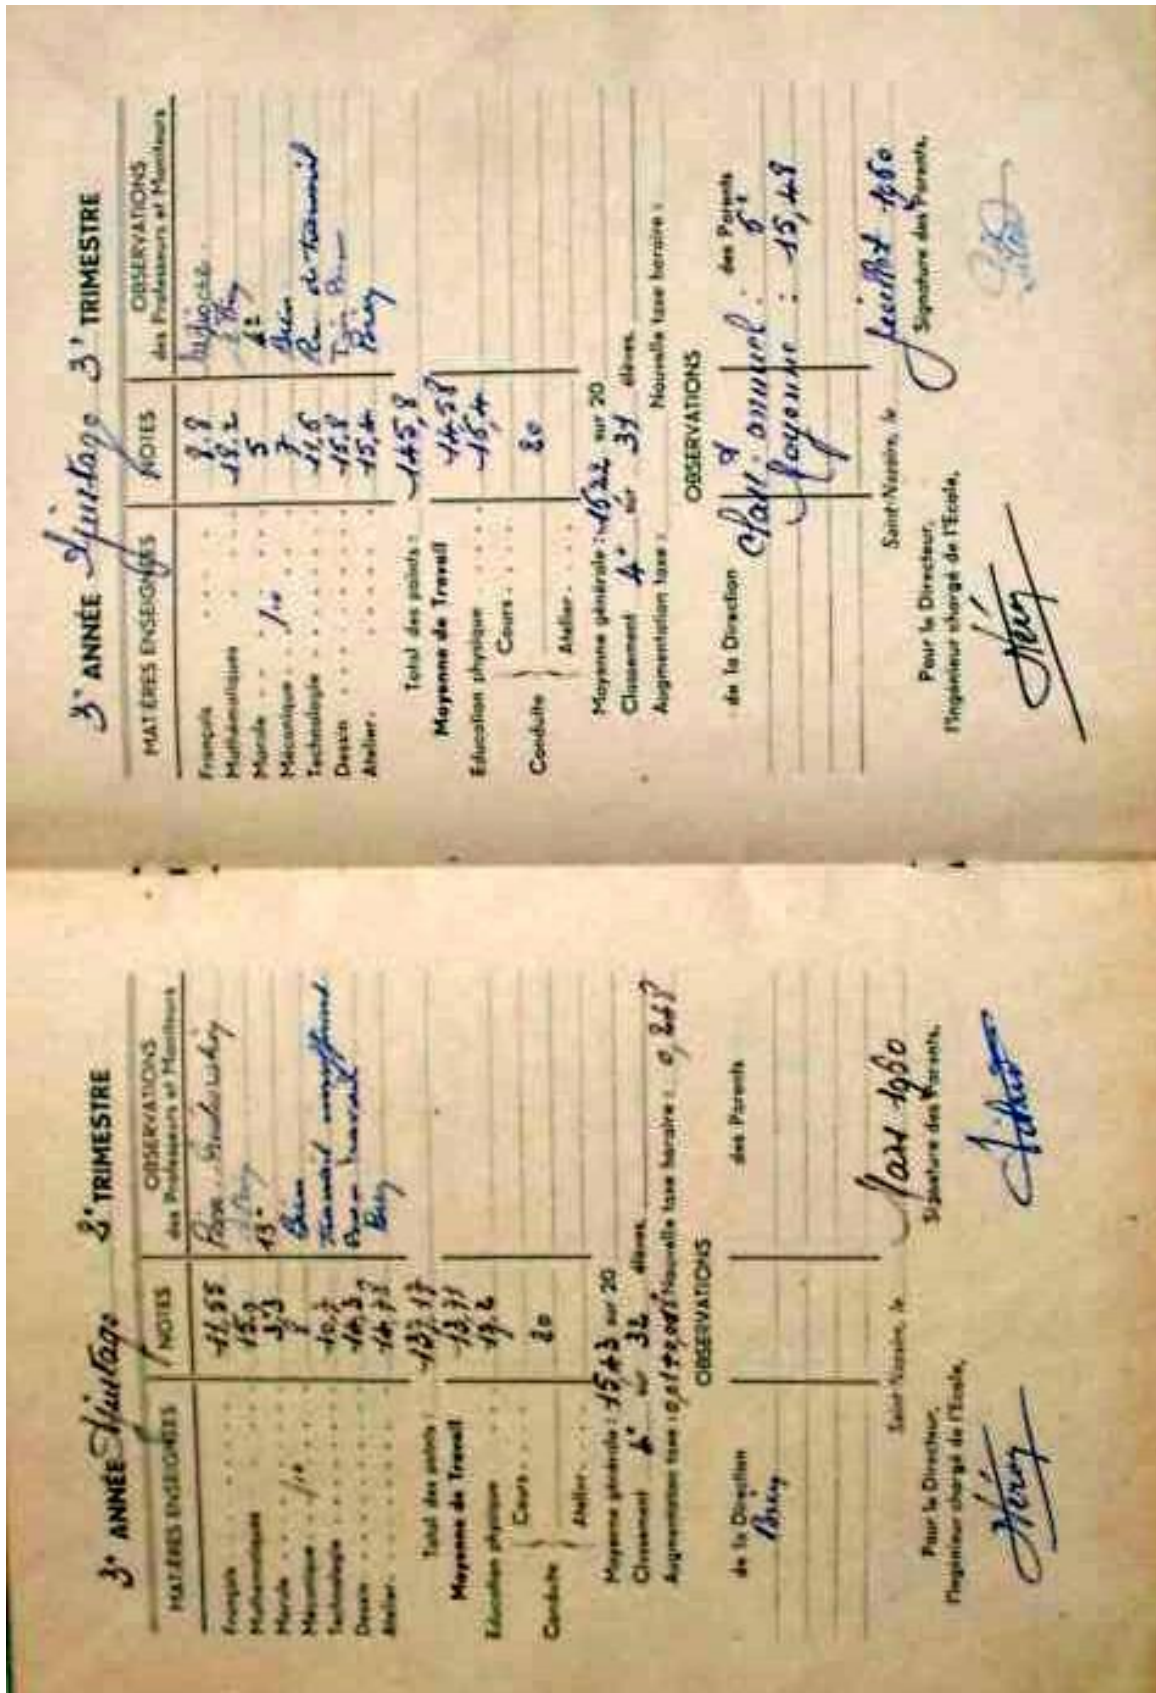 3e ANNÉE Ajustage 2e TRIMESTRE
MATIÈRES ENSEIGNÉES NOTES OBSERVATIONS des Professeurs et Moniteurs
Français 11,55
Mathématiques 15,9
Morale
Mécanique /10 8 Bien
Technologie 10,7 Travail insuffisant
Dessin 14,3 Bon travail
Atelier 14,78 Bien
Total des points : 137,17
Moyenne de Travail 13,71
Education physique 17,2
Conduite Cours 20
Atelier
Moyenne générale : 15,43 sur 20
Classement 6e sur 32 élèves
Augmentation taxe : Nouvelle taxe horaire : 0,248
OBSERVATIONS
de la Direction des Parents
Bien
Saint-Nazaire, le Mars 1960
Pour le Directeur, Signature des Parents,
l'Ingénieur chargé de l'Ecole,
3e ANNÉE Ajustage 3e TRIMESTRE
MATIÈRES ENSEIGNÉES NOTES OBSERVATIONS des Professeurs et Moniteurs
Français 8,8
Mathématiques 18,2
Morale 5
Mécanique /10 7 Bien
Technologie 11,6 Peu de travail
Dessin 15,8
Atelier 15,4 Bien
Total des points : 145,8
Moyenne de Travail 14,58
Education physique 15,4
Conduite Cours 20
Atelier
Moyenne générale : 15,22 sur 20
Classement 4e sur 31 élèves
Augmentation taxe : Nouvelle taxe horaire :
OBSERVATIONS
de la Direction des Parents
Clast annuel : 6e
Moyenne : 15,48
Saint-Nazaire, le Juillet 1960
Pour le Directeur, Signature des Parents,
l'Ingénieur chargé de l'Ecole,